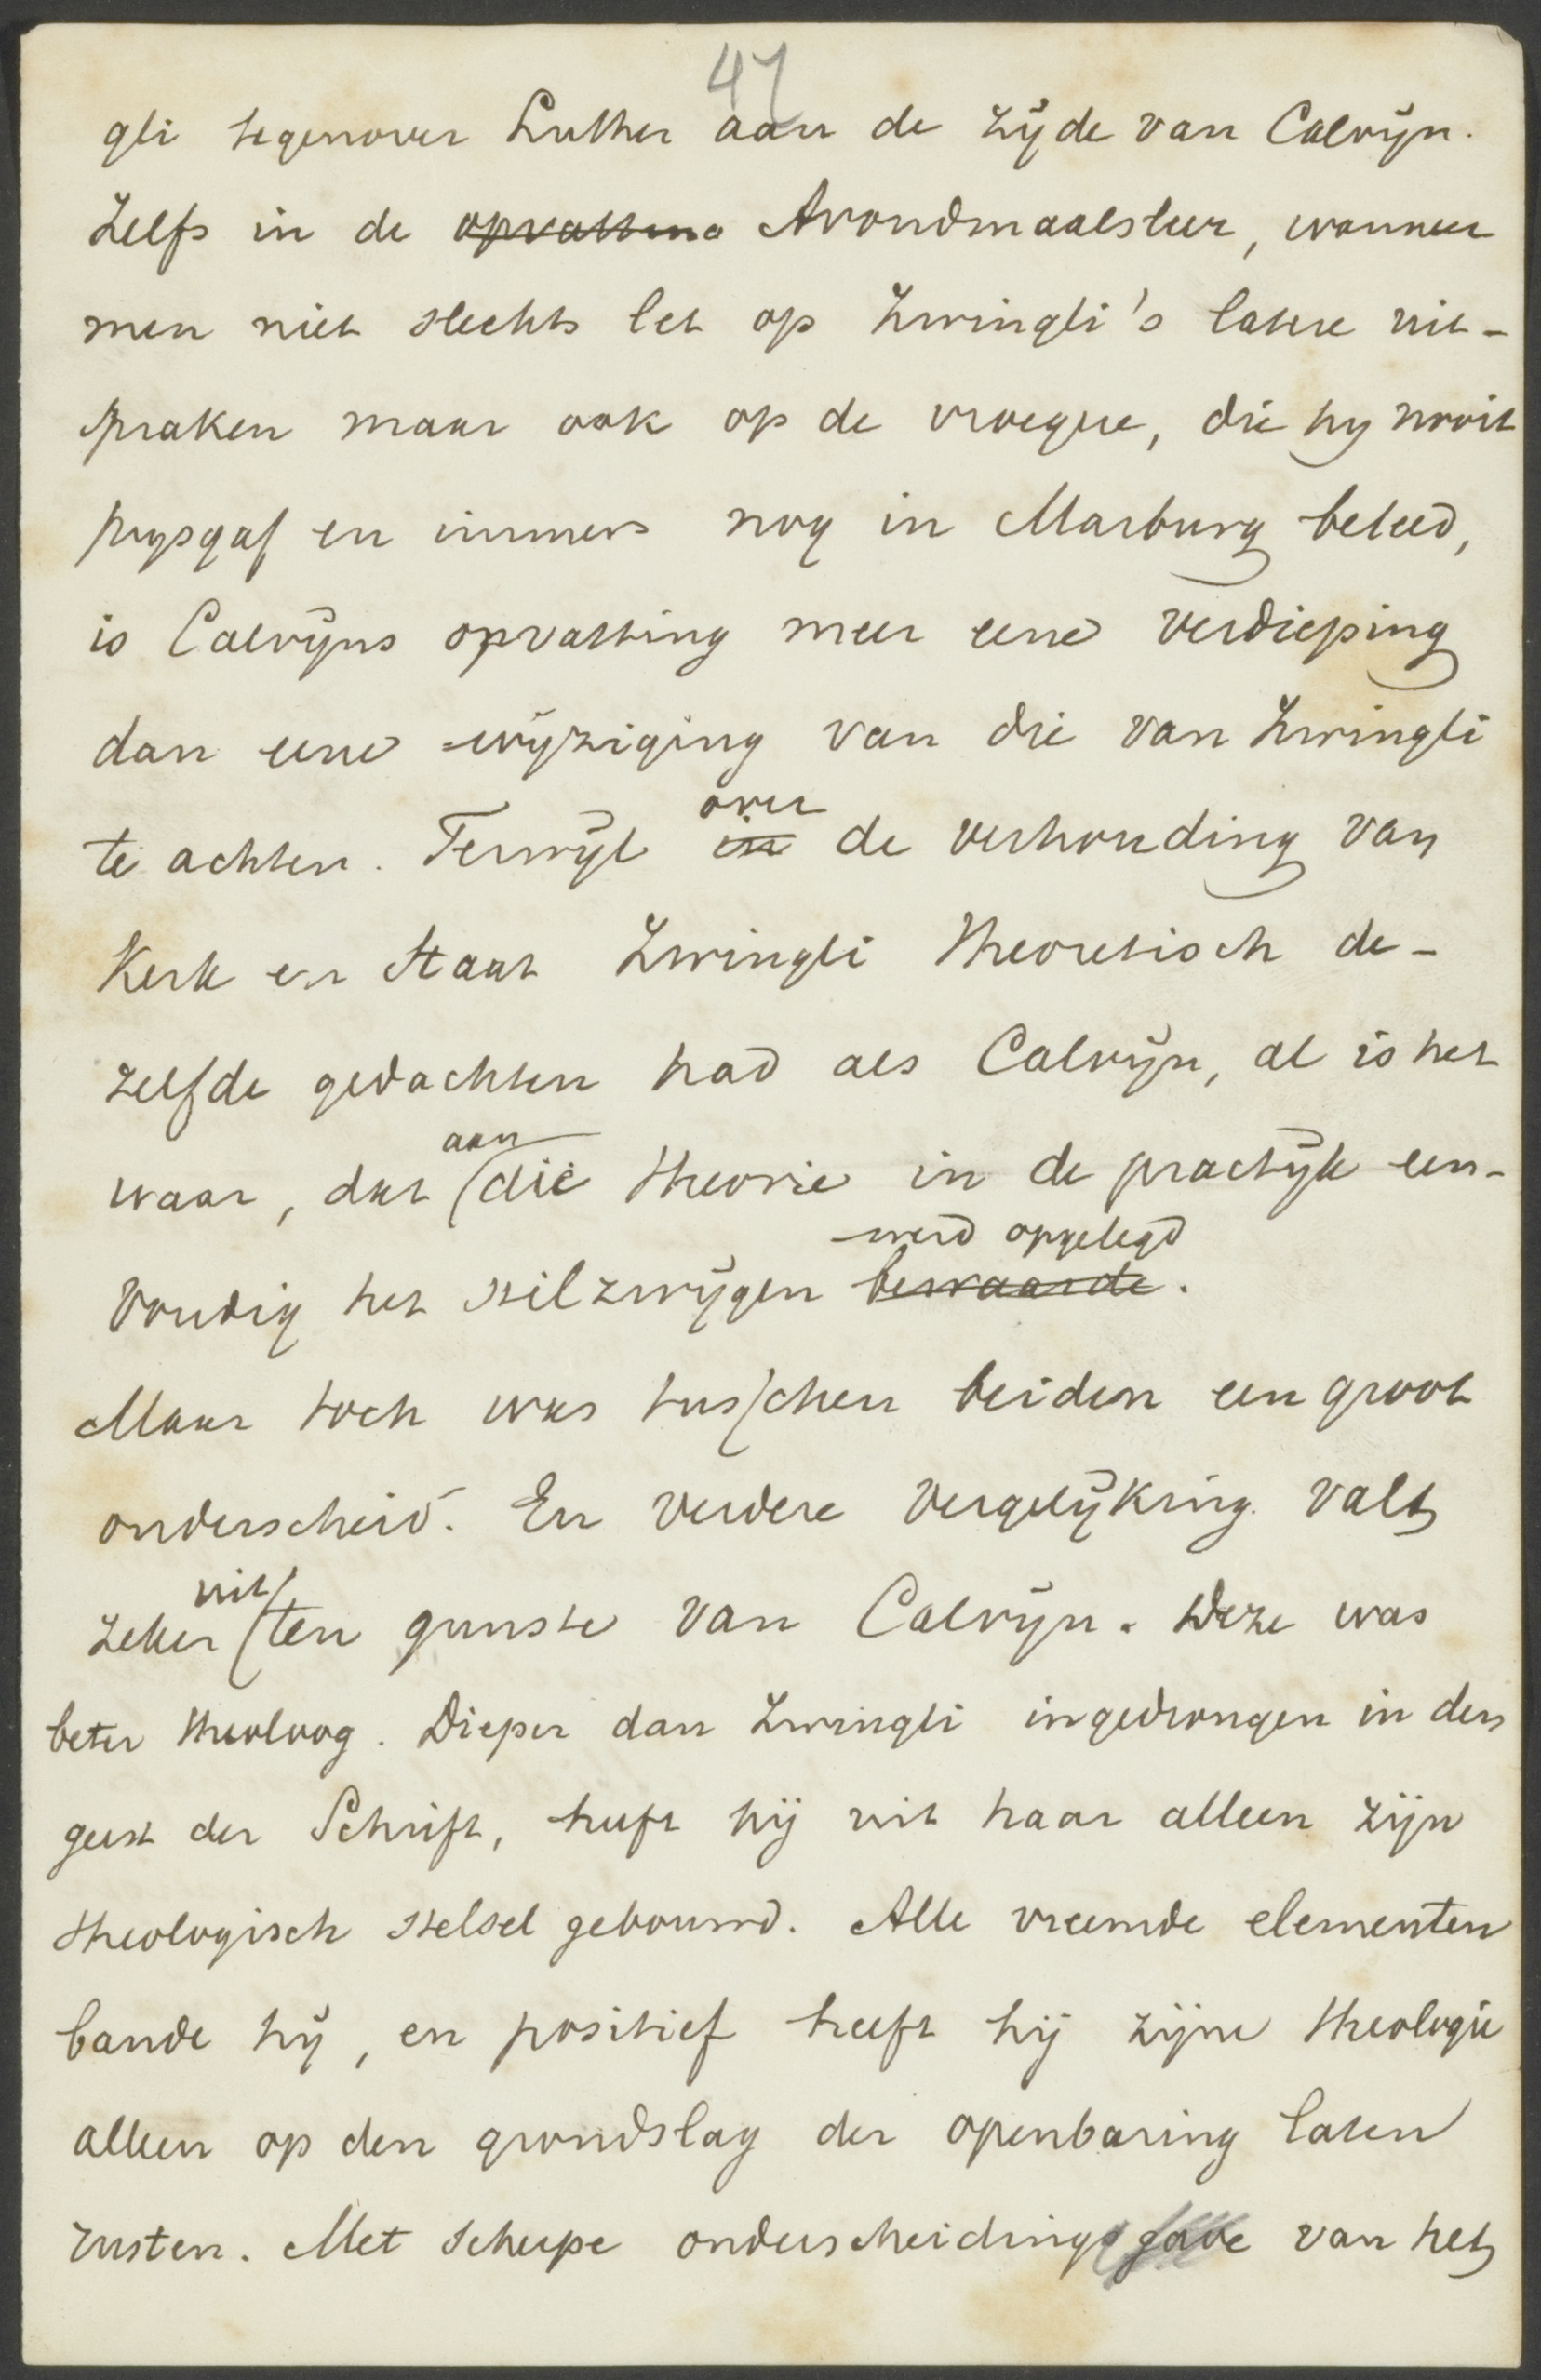 47
gli tegenover Luther aan de zijde van Calvijn.
Zelfs in de opvatting Avondmaalsleer, wanneer
men niet slechts let op Zwingli's latere uit-
spraken maar ook op de vroegere, die hij nooit
prijsgaf en immers nog in Marburg beleed,
is Calvijns opvatting meer eene verdieping
dan eene wijziging van die van Zwingli
over
te achten. Terwijl in de verhouding van
Kerk en Staat Zwingli theoretisch de-
zelfde gedachten had als Calvijn, al is het
aan
waar, dat die theorie in de practijk een-
werd opgelegd
voudig het stilzwijgen bewaarde.
Maar toch was tusschen beiden een groot
onderscheid. En verdere vergelijking valt
uit
zeker ten gunste van Calvijn. Deze was
beter theoloog. Dieper dan Zwingli ingedrongen in den
geest der Schrift, heeft hij uit haar alleen zijn
theologisch stelsel gebouwd. Alle vreemde elementen
bande hij, en positief heeft hij zijne theologie
alleen op den grondslag der openbaring laten
rusten. Met scherpe onderscheidingsgave van het